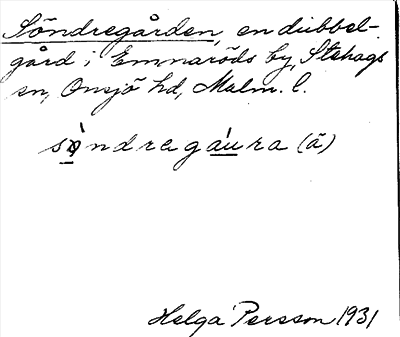 Söndregården, en dubbel-
gård i Emnaröds by, Stehags
sn, Onsjö hd, Malm. l.
sø̀ndregáura (ã)
Helga Persson 1931